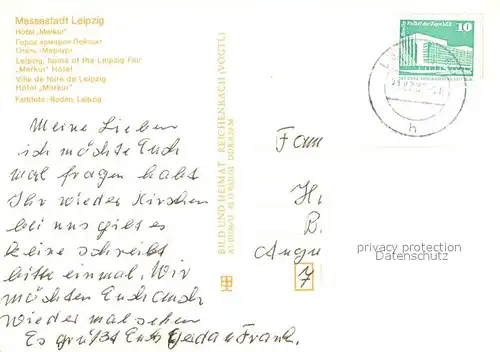 Messestadt Leipzig
Hotel „Merkur"
Город ярмарок Лейпциг
Отель „Меркур"
Leipzig, home of the Leipzig Fair
„Merkur" Hotel
Ville de foire de Leipzig
Hôtel „Merkur"
Farbfoto: Boden, Leipzig
10
h
BILD UND HEIMAT REICHENBACH (VOGTL)
Meine Lieben
ich möchte Euch
mal fragen habt
Ihr wieder Kirschen
bei uns gibt es
keine schreibt
bitte einmal. Wir
möchten Euch auch
wieder mal sehen
Es grüßt Euch Gerda u Frank.
Fam
H
B.
Augu
7
privacy protection
Datenschutz